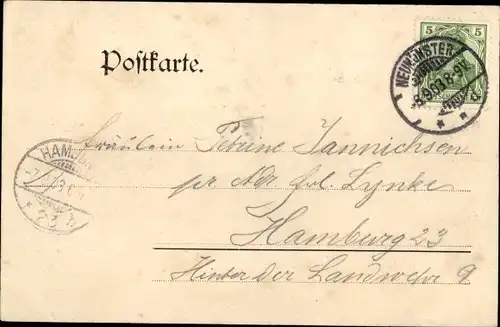 5 5
NEUMÜNSTER
8-9V.
Postkarte.
HAMBURG
Fräulein Petrine Jannichsen
pr. Adr. frl. Lynke
Hamburg 23
Hinter der Landwehr 9